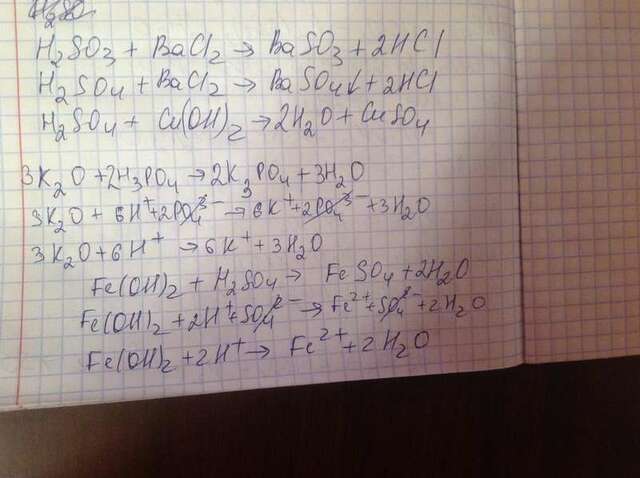 H₂SO₃ + BaCl₂ → BaSO₃ + 2HCl
H₂SO₄ + BaCl₂ → BaSO₄↓ + 2HCl
H₂SO₄ + Cu(OH)₂ → 2H₂O + CuSO₄
3K₂O + 2H₃PO₄ → 2K₃PO₄ + 3H₂O
3K₂O + 6H⁺ + 2PO₄³⁻ → 6K⁺ + 2PO₄³⁻ + 3H₂O
3K₂O + 6H⁺ → 6K⁺ + 3H₂O
Fe(OH)₂ + H₂SO₄ → FeSO₄ + 2H₂O
Fe(OH)₂ + 2H⁺ + SO₄²⁻ → Fe²⁺ + SO₄²⁻ + 2H₂O
Fe(OH)₂ + 2H⁺ → Fe²⁺ + 2H₂O